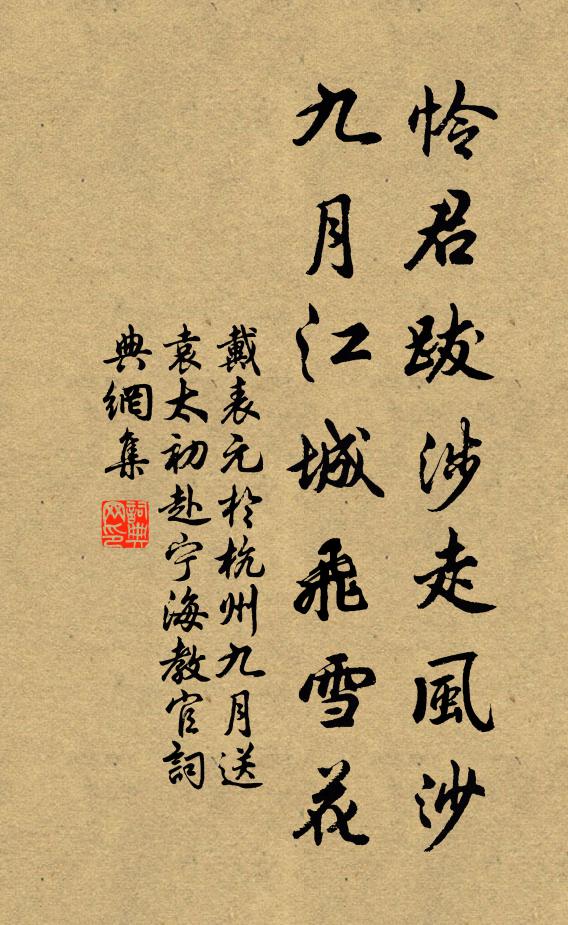 怜君跋涉走風沙
九月江城飛雪花
戴表元於杭州九月送
袁太初赴宁海教官詞
典網集
詞典
网印